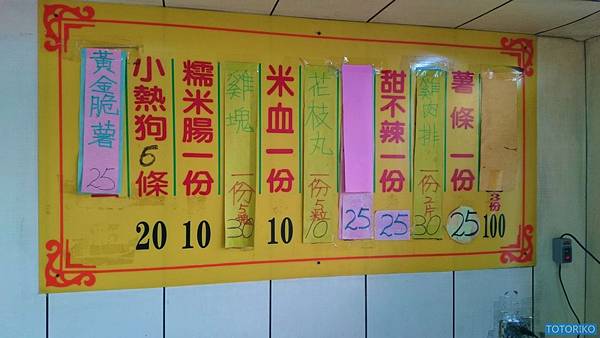 3份 100
薯條一份 25
雞肉排 一份2片 30
甜不辣一份 25
25
花枝丸 一份5粒 10
米血一份 10
雞塊 一份5塊 30
糯米腸一份 10
小熱狗6條 20
黃金脆薯 25
TOTORIKO